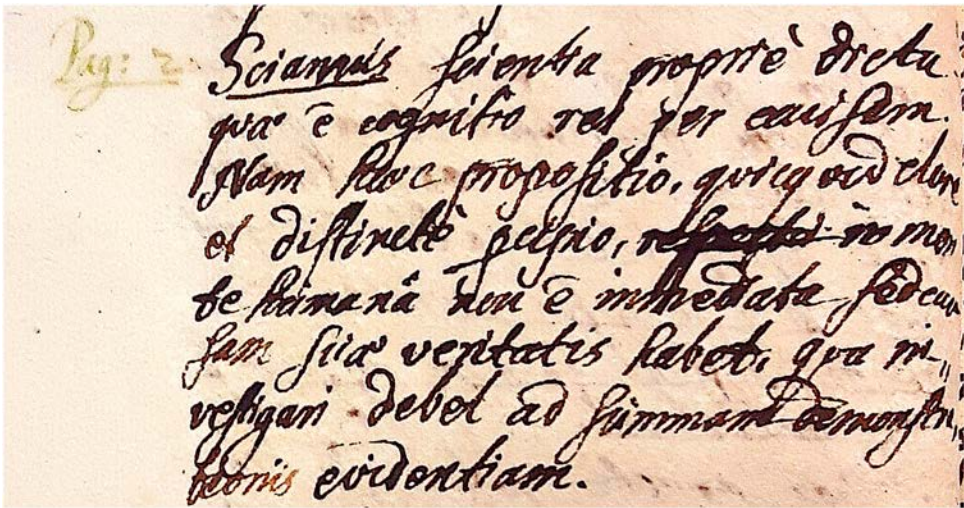 Pag: 2.
Sciamus scientia propriè dicta
quæ ē cognitio rei per caussam.
Nam hæc propositio, quicquid clare
et distinctè pcipio, in men
te humanâ non ē immediata sed cau
sam suæ veritatis habet, quæ in„
vestigari debet ad summam demonstra„
tionis evidentiam.